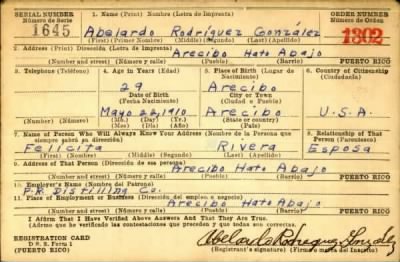 SERIAL NUMBER
Número de Serie
1645
1. Name (Print) Nombre (Letra de Imprenta)
Abelardo Rodríguez González
(First) (Primer Nombre) (Middle) (Segundo) (Last) (Apellido)
ORDER NUMBER
Número de Orden
1302
2. Address (Print) Dirección (Letra de Imprenta)
Arecibo Hato Abajo
(Number and street) (Número y calle) (Town) (Pueblo) (Barrio)
PUERTO RICO
3. Telephone (Teléfono)
4. Age in Years (Edad)
29
Date of Birth
(Fecha Nacimiento)
Mayo 22, 1910
(Mo.) (Day) (Yr.)
(Mes) (Día) (Año)
5. Place of Birth (Lugar de
Nacimiento)
Arecibo
City or Town
(Ciudad o Pueblo)
Arecibo
(State or country)
6. Country of Citizenship
(Ciudadanía)
U.S.A.
7. Name of Person Who Will Always Know Your Address (Nombre de la Persona que
siempre sabrá su dirección)
Felicita Rivera
(First) (Nombre) (Middle) (Segundo) (Last) (Apellido)
8. Relationship of That
Person (Parentesco)
Esposa
9. Address of That Person (Dirección de esa persona)
Arecibo Hato Abajo
(Number and street) (Número y calle) (Town) (Pueblo) (Barrio)
PUERTO RICO
10. Employer's Name (Nombre del Patrono)
P.R. Distilling Co.
11. Place of Employment or Business (Dirección del empleo o negocio)
Arecibo Hato Abajo
(Number and street) (Número y calle) (Town) (Pueblo) (Barrio)
PUERTO RICO
I Affirm That I Have Verified Above Answers And That They Are True.
Afirmo que he verificado las contestaciones que preceden y que todas son correctas.
REGISTRATION CARD
D. S. S. Form 1
(Continuación)
Abelardo Rodríguez González
(Registrant's signature) (Firma o marca del Inscrito)